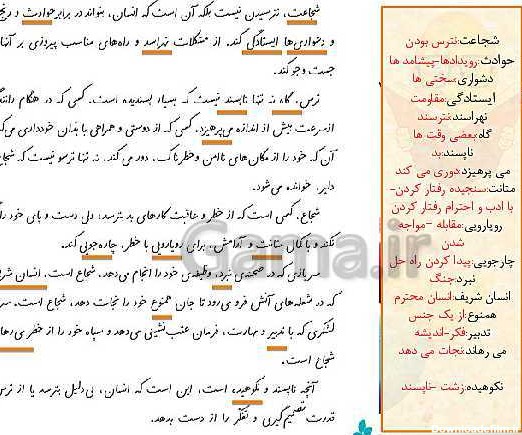 شجاعت، نترسیدن نیست بلکه آن است که انسان، بتواند در برابر حوادث و رنج
و دشواری ها ایستادگی کند. از مشکلات نهراسد و راه‌های مناسب پیروزی بر آنها
جست وجو کند.
ترس، گاه نه تنها ناپسند نیست که بسیار پسندیده است. کسی که در هنگام رانندگ
از سرعت بیش از اندازه می‌پرهیزد. کسی که از دوستی و همراهی با بدان خودداری می‌ک
آن که خود را از مکان‌های ناامن و خطرناک، دور می‌کند. نه تنها ترسو نیست که شجاع
دلیر، خوانده می‌شود.
شجاع، کسی است که از خطر و عاقبت کارهای بد بترسد؛ ولی دست و پای خود را
نکند و با کمال متانت و آرامش، برای رویارویی با خطر، چاره‌جویی کند.
سربازی که در صحنه‌ی نبرد، وظیفه‌ی خود را انجام می‌دهد. شجاع است. انسان شری
که در شعله‌های آتش فرو می‌رود تا جان همنوع خود را نجات دهد، شجاع است. سر
لشکری که با تدبیر و مهارت، فرمان عقب‌نشینی می‌دهد و سپاه خود را از خطر می‌رها
شجاع است.
آنچه ناپسند و نکوهیده است، این است که انسان، بی‌دلیل بترسد یا از ترس
قدرت تصمیم‌گیری و تفکّر را از دست بدهد.
شجاعت:نترس بودن
حوادث:رویدادها-پیشامد ها
دشواری:سختی ها
ایستادگی:مقاومت
نهراسند:نترسند
گاه:بعضی وقت ها
ناپسند:بد
می پرهیزد:دوری می کند
متانت:سنجیده رفتار کردن-
با ادب و احترام رفتار کردن
رویارویی:مقابله -مواجه
شدن
چارجویی:پیدا کردن راه حل
نبرد:جنگ
انسان شریف:انسان محترم
همنوع:از یک جنس
تدبیر:فکر-اندیشه
می رهاند:نجات می دهد
نکوهیده:زشت -ناپسند
Gama.ir